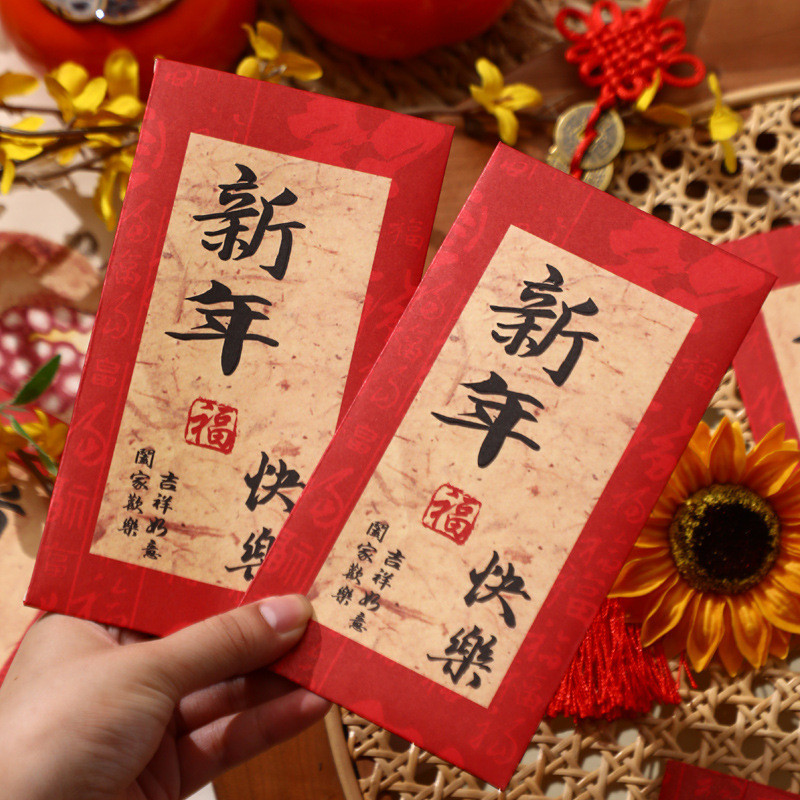 新年
福
快樂
吉祥如意
闔家歡樂
新年
福
快樂
吉祥如意
闔家歡樂